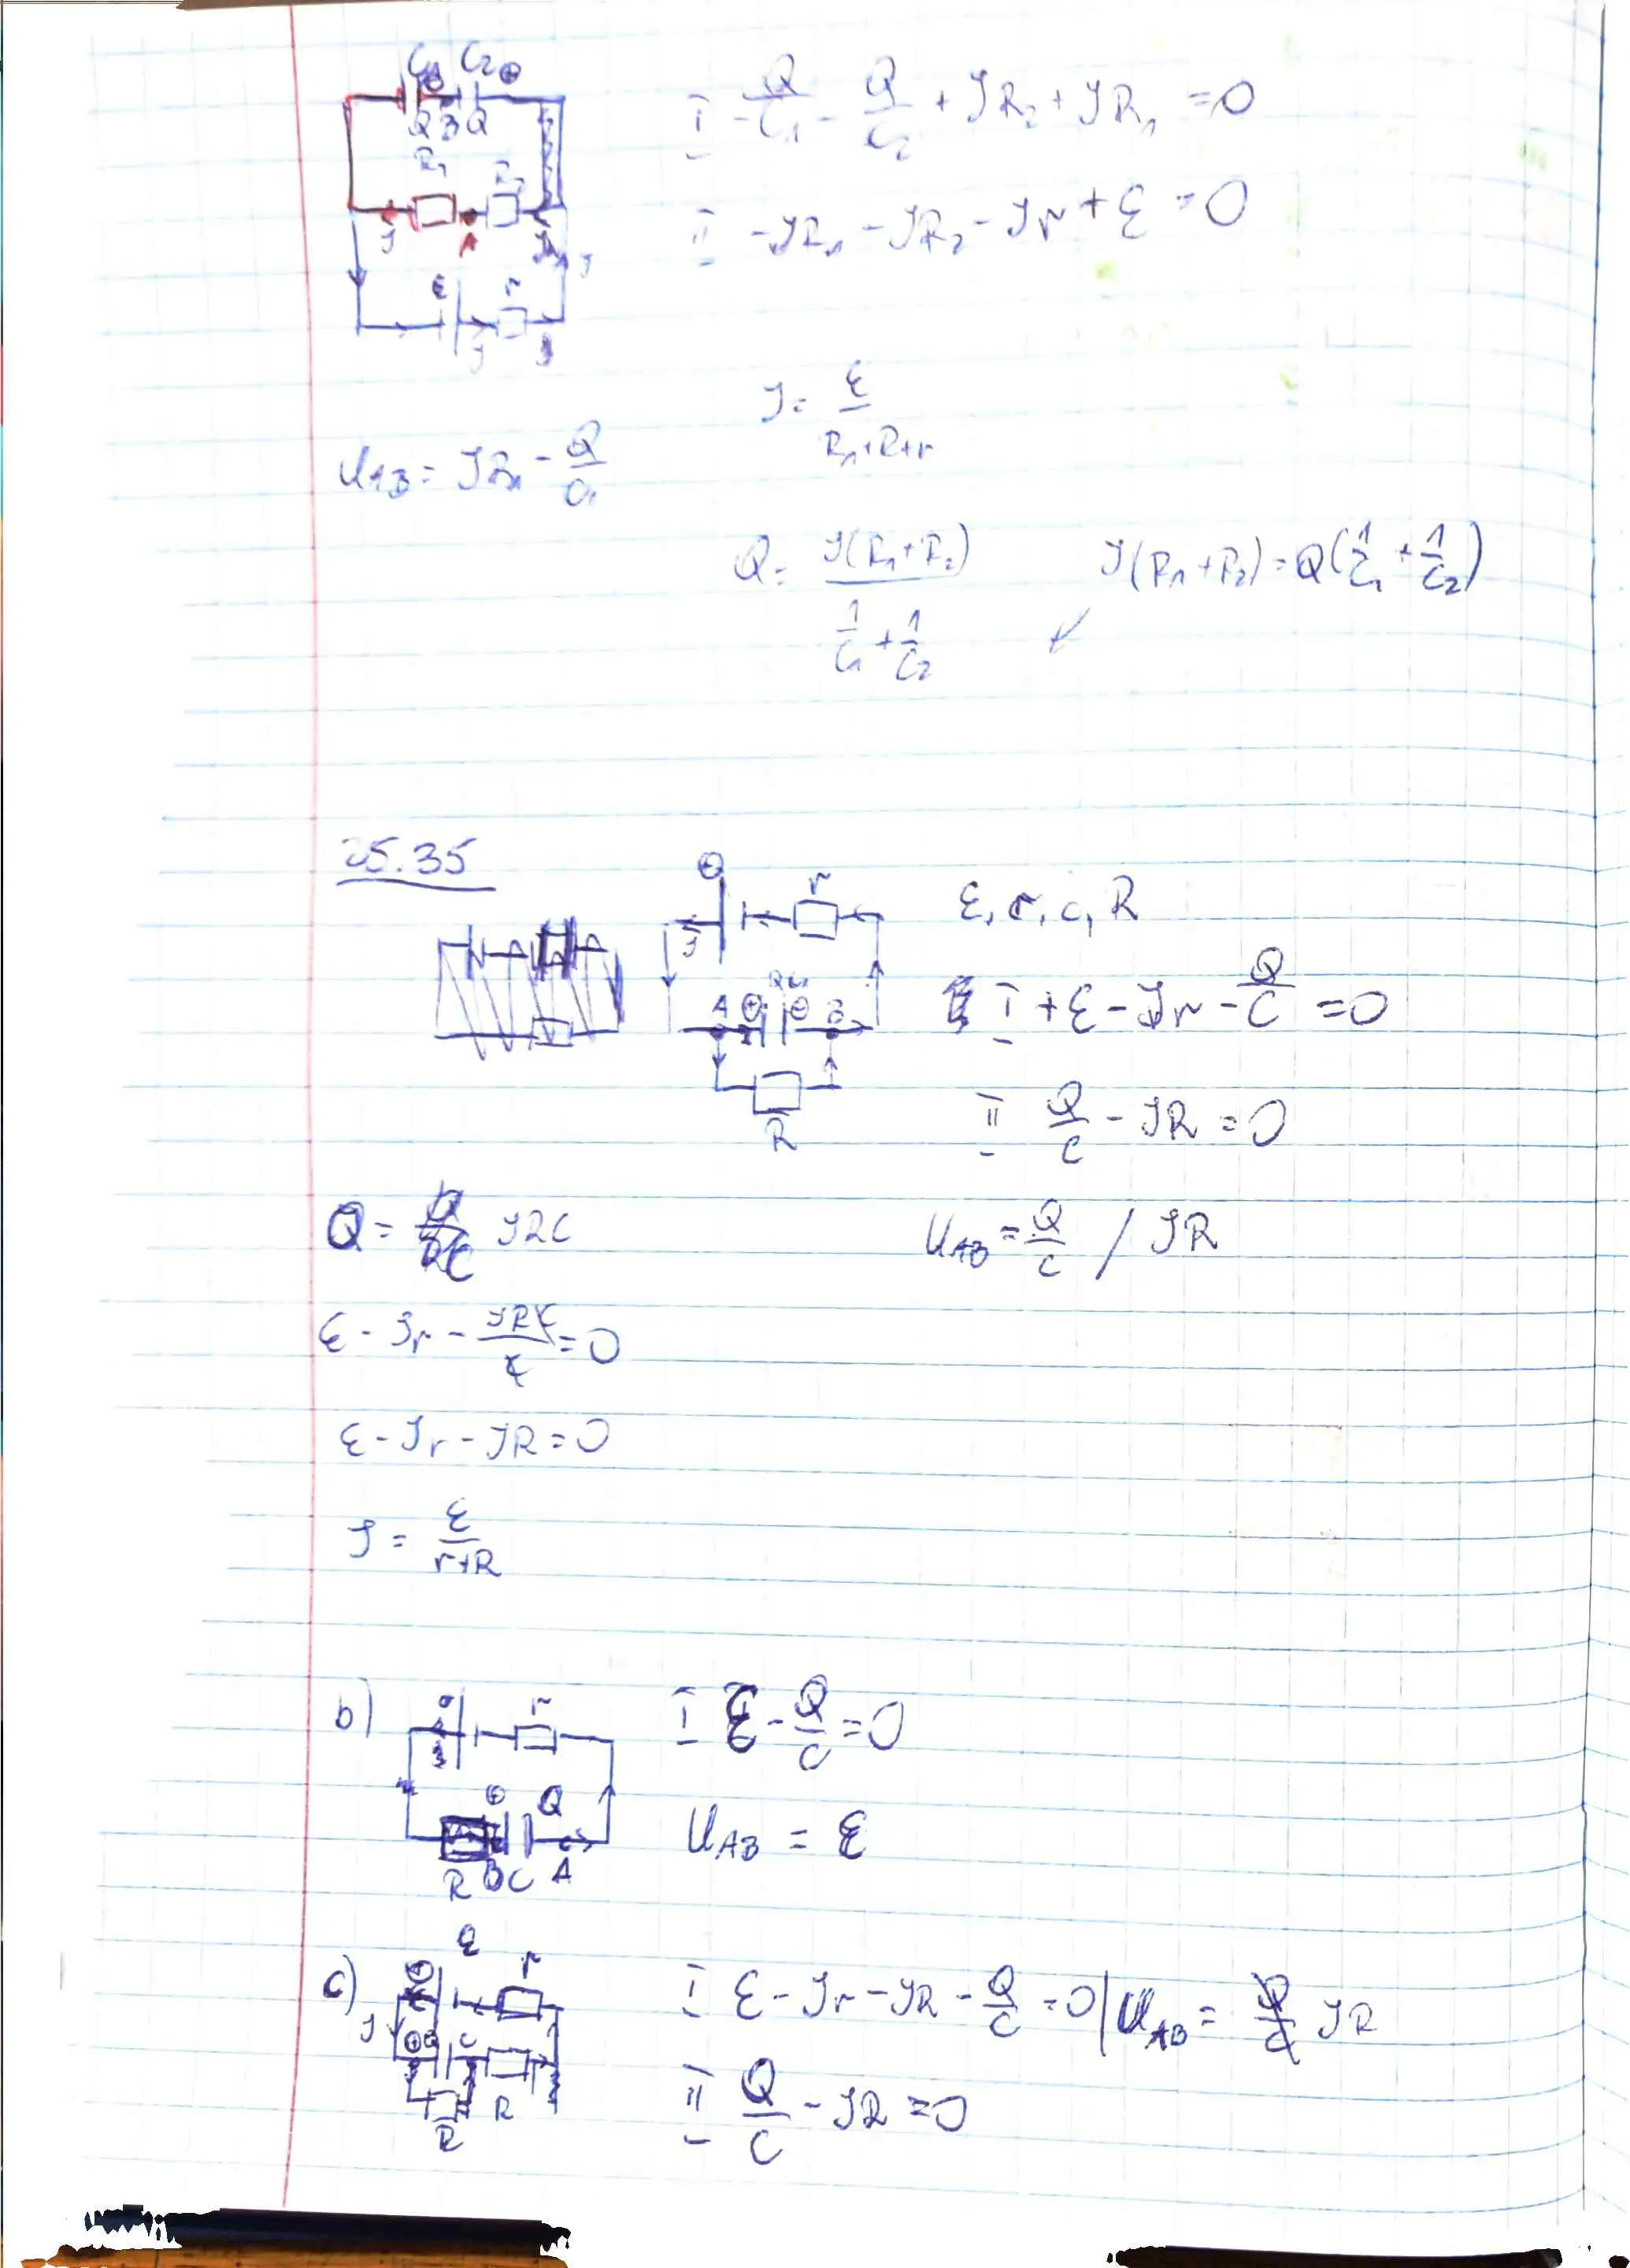 C₁ C₂ ⊕
Q B Q
R₁ R₂
J A
ε r
J
I -Q/C₁ - Q/C₂ + JR₂ + JR₁ = 0
II -JR₁ - JR₂ - Jr + ε = 0
J = ε/(R₁+R+r)
U_AB = JR₁ - Q/C₁
Q = J(R₁+R₂)/(1/C₁ + 1/C₂)
J(R₁+R₂) = Q(1/C₁ + 1/C₂)
25.35
⊕ r
J
A ⊕ ⊖ B
R
ε, r, c, R
I +ε - Jr - Q/C = 0
II Q/C - JR = 0
Q = JRC
U_AB = Q/C / JR
ε - Jr - JRC/C = 0
ε - Jr - JR = 0
J = ε/(r+R)
b) r
⊕ Q
R B C A
I ε - Q/C = 0
U_AB = ε
c) ε r
J
C
R R
I ε - Jr - JR - Q/C = 0 | U_AB = JR
II Q/C - JR = 0